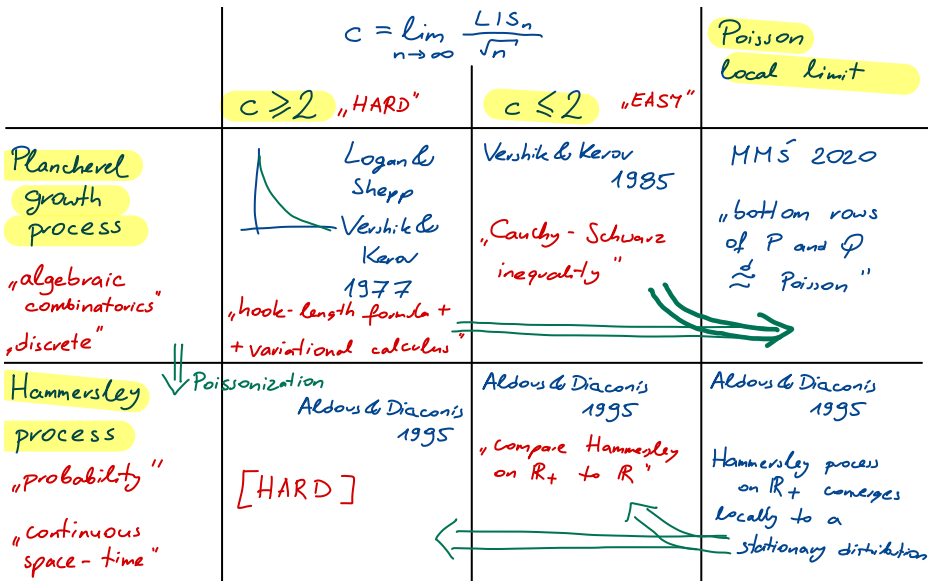 c = lim LISn / √n
n→∞
Poisson
local limit
c ⩾ 2 „HARD"
c ≤ 2 „EASY"
Plancherel
growth
process
„algebraic
combinatorics"
„discrete"
Logan &
Shepp
Vershik &
Kerov
1977
„hook-length formula +
+ variational calculus"
Vershik & Kerov
1985
„Cauchy - Schwarz
inequality"
MMŚ 2020
„bottom rows
of P and Q
d
≈ Poisson"
Poissonization
Hammersley
process
„probability"
„continuous
space-time"
Aldous & Diaconis
1995
[HARD]
Aldous & Diaconis
1995
„compare Hammersley
on ℝ+ to ℝ"
Aldous & Diaconis
1995
Hammersley process
on ℝ+ converges
locally to a
stationary distribution